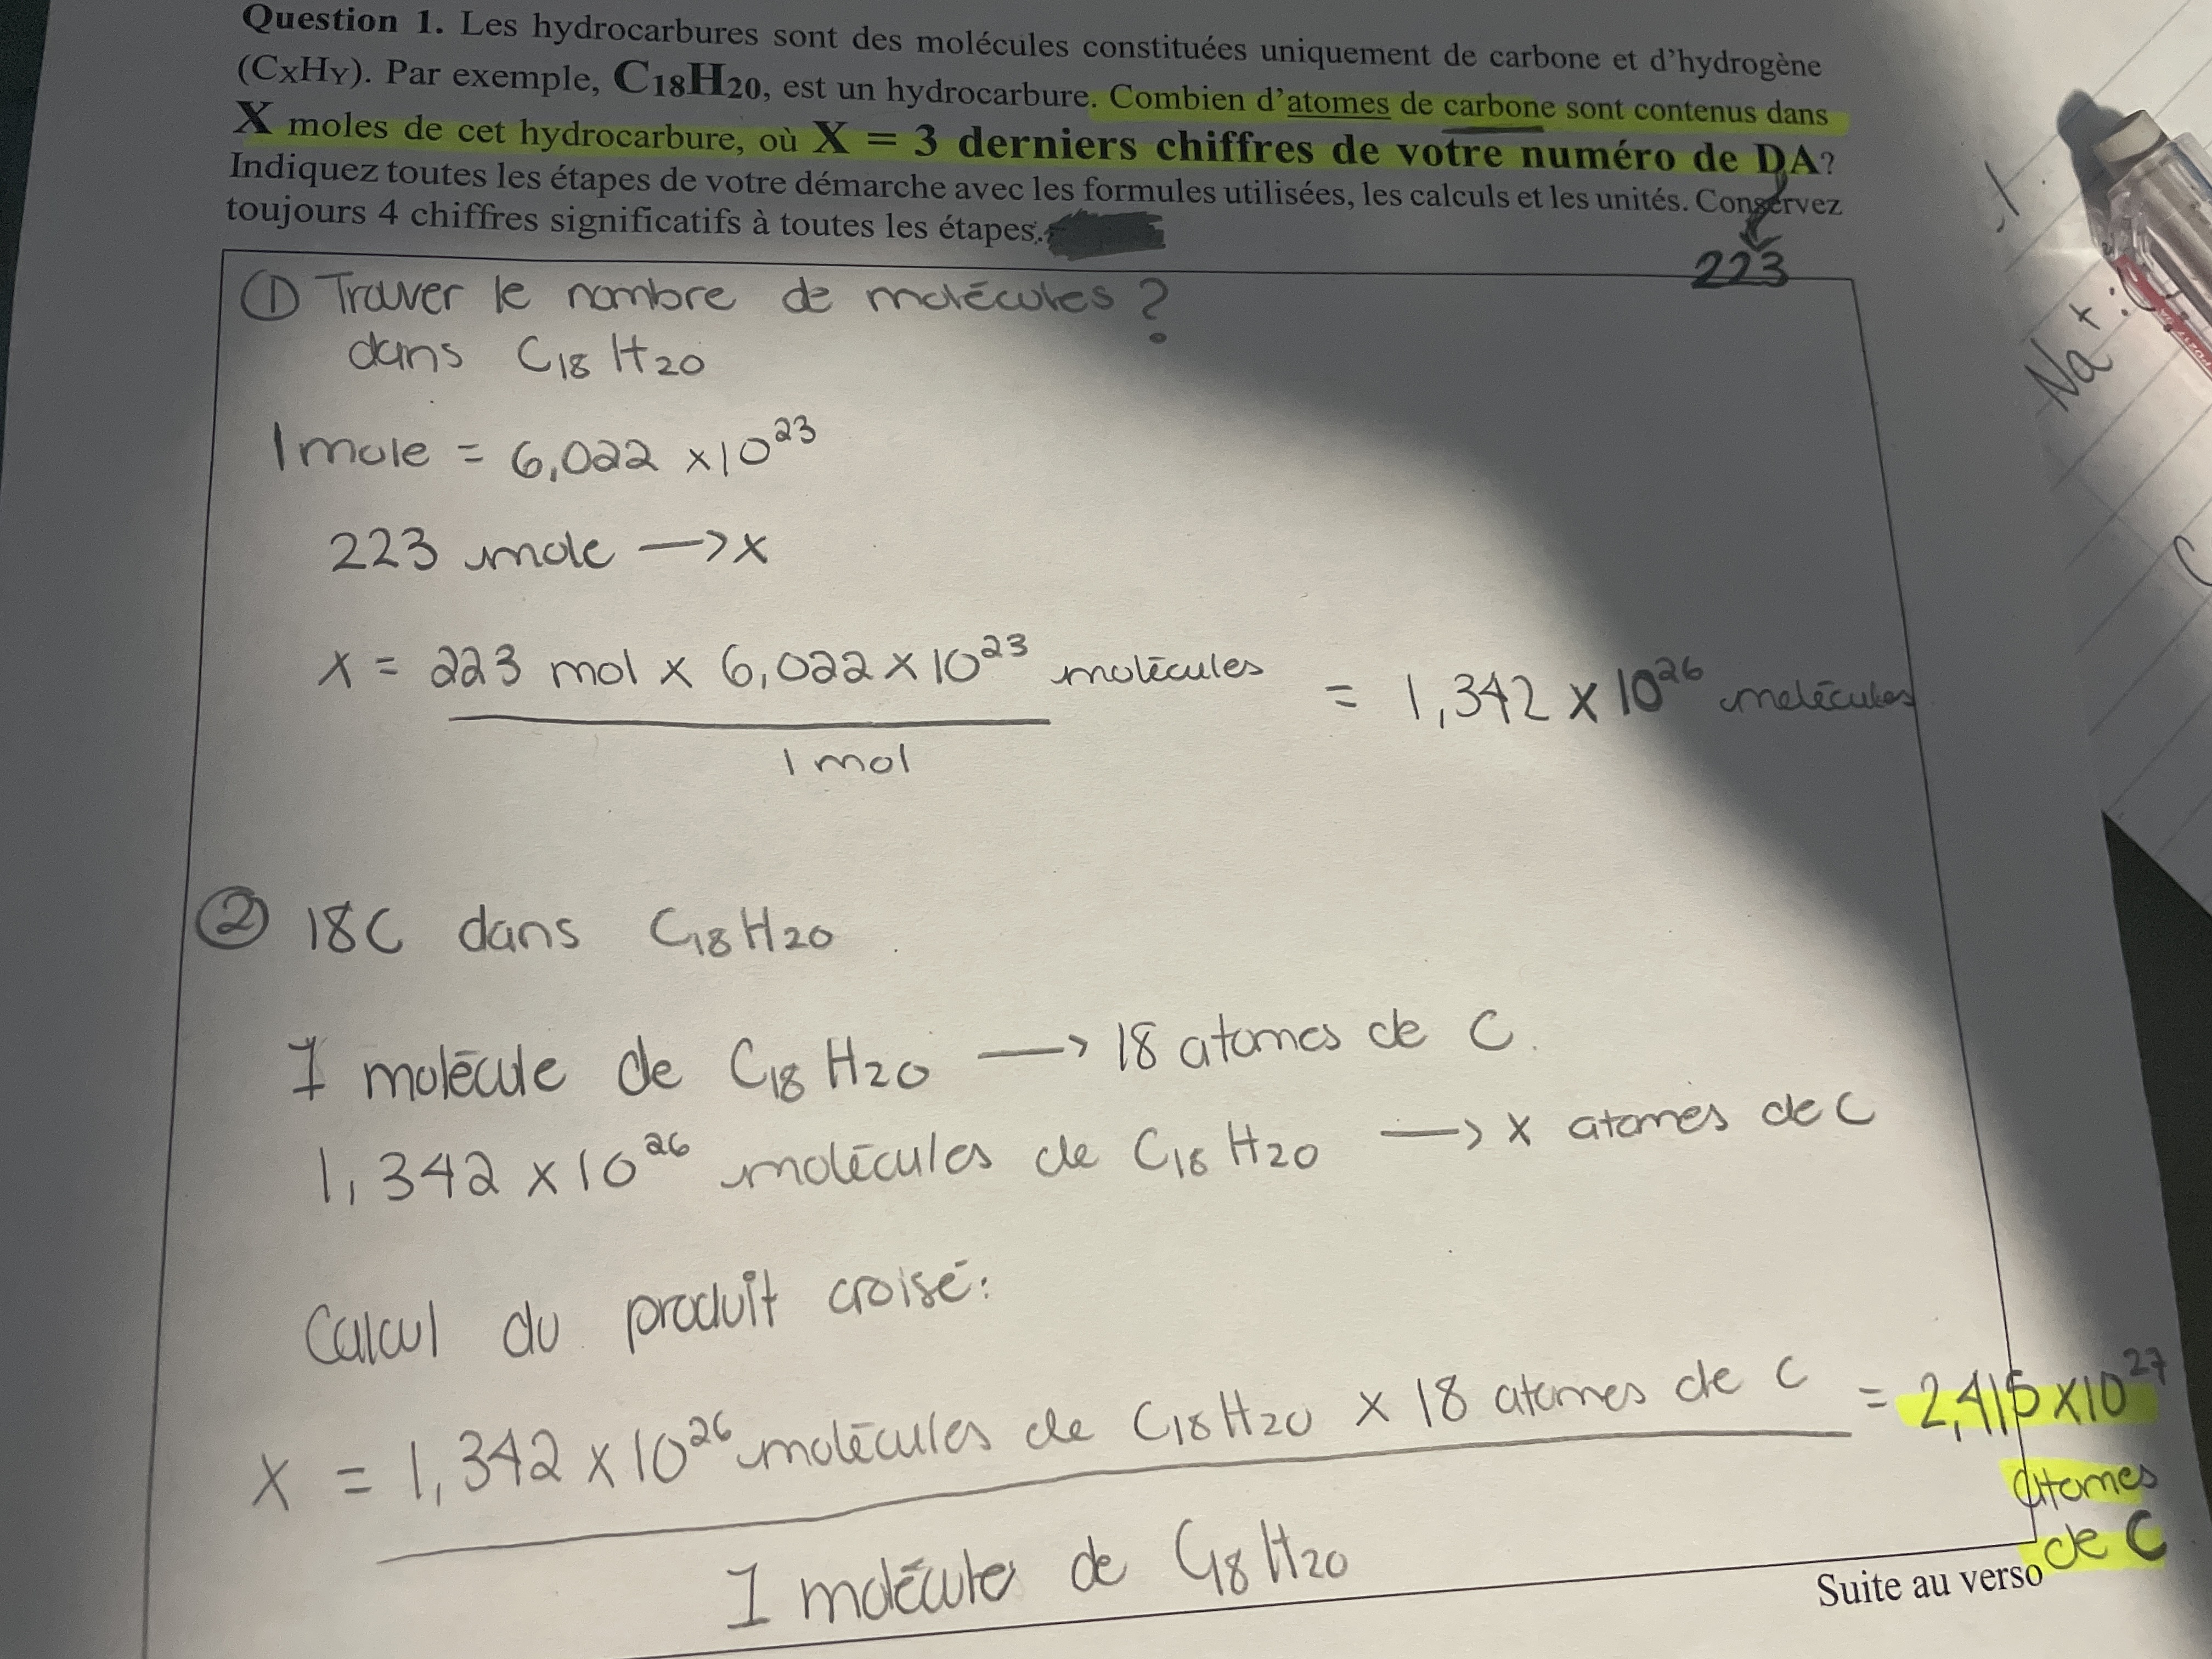 Question 1. Les hydrocarbures sont des molécules constituées uniquement de carbone et d'hydrogène
(CxHY). Par exemple, C18H20, est un hydrocarbure. Combien d'atomes de carbone sont contenus dans
X moles de cet hydrocarbure, où X = 3 derniers chiffres de votre numéro de DA?
Indiquez toutes les étapes de votre démarche avec les formules utilisées, les calculs et les unités. Conservez
toujours 4 chiffres significatifs à toutes les étapes.
223
① Trouver le nombre de molécules ?
dans C18H20
1 mole = 6,022 x10^23
223 mole —> x
x = 223 mol x 6,022 x 10^23 molécules = 1,342 x 10^26 molécules
1 mol
② 18C dans C18H20
1 molécule de C18H20 —> 18 atomes de C.
1,342 x 10^26 molécules de C18H20 —> x atomes de C
Calcul du produit croisé:
x = 1,342 x 10^26 molécules de C18H20 x 18 atomes de C = 2,415 x10^27
atomes
de C
1 molécule de C18H20
Suite au verso
Na+: